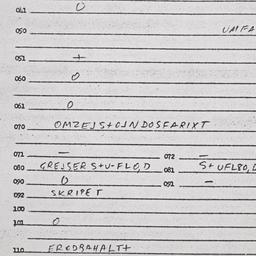 041 0
050 UMFA
051 +
060 0
061 0
070 OMZEJS+OJNDOSFARIXT
071 — 072 —
080 GREJSER S+U-FLO,D 081 S+UFLBO,D
090 0 091 —
092 SKRIPET
100
101 0
110 FRODBAHALT+